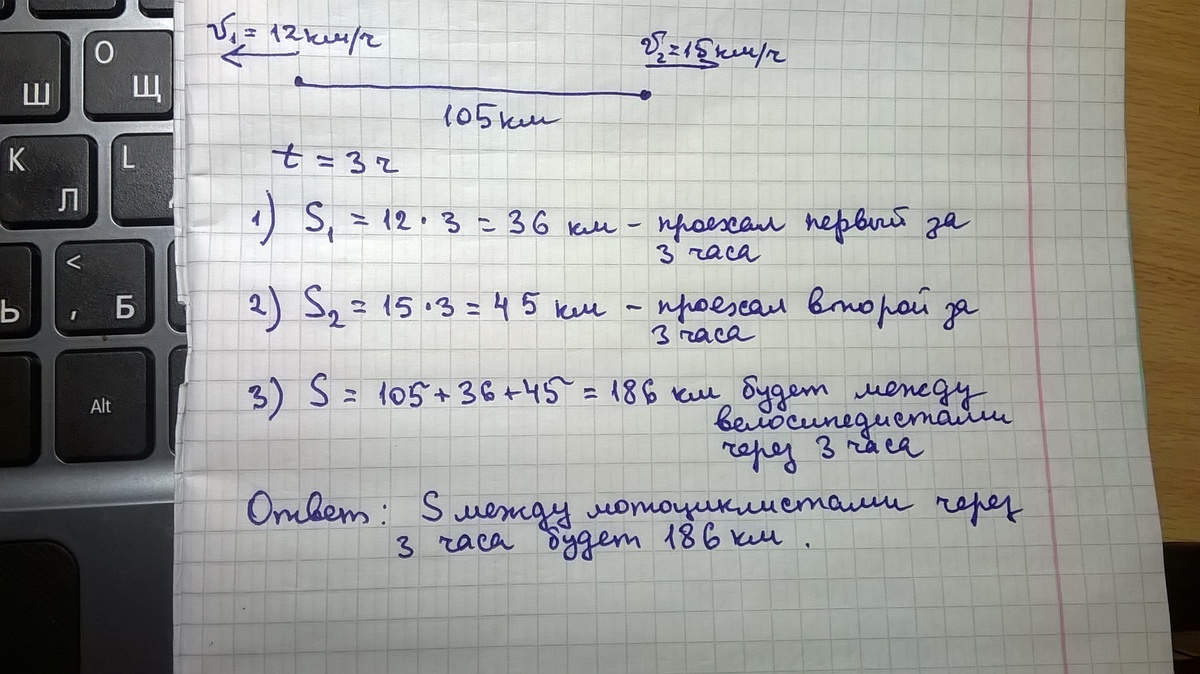 v₁ = 12 км/ч
v₂ = 15 км/ч
105 км
t = 3 ч
1) S₁ = 12 · 3 = 36 км – проехал первый за
3 часа
2) S₂ = 15 · 3 = 45 км – проехал второй за
3 часа
3) S = 105 + 36 + 45 = 186 км будет между
велосипедистами
через 3 часа
Ответ: S между мотоциклистами через
3 часа будет 186 км.
О
Ш
Щ
K
Л
L
Ь
<
,
Б
Alt